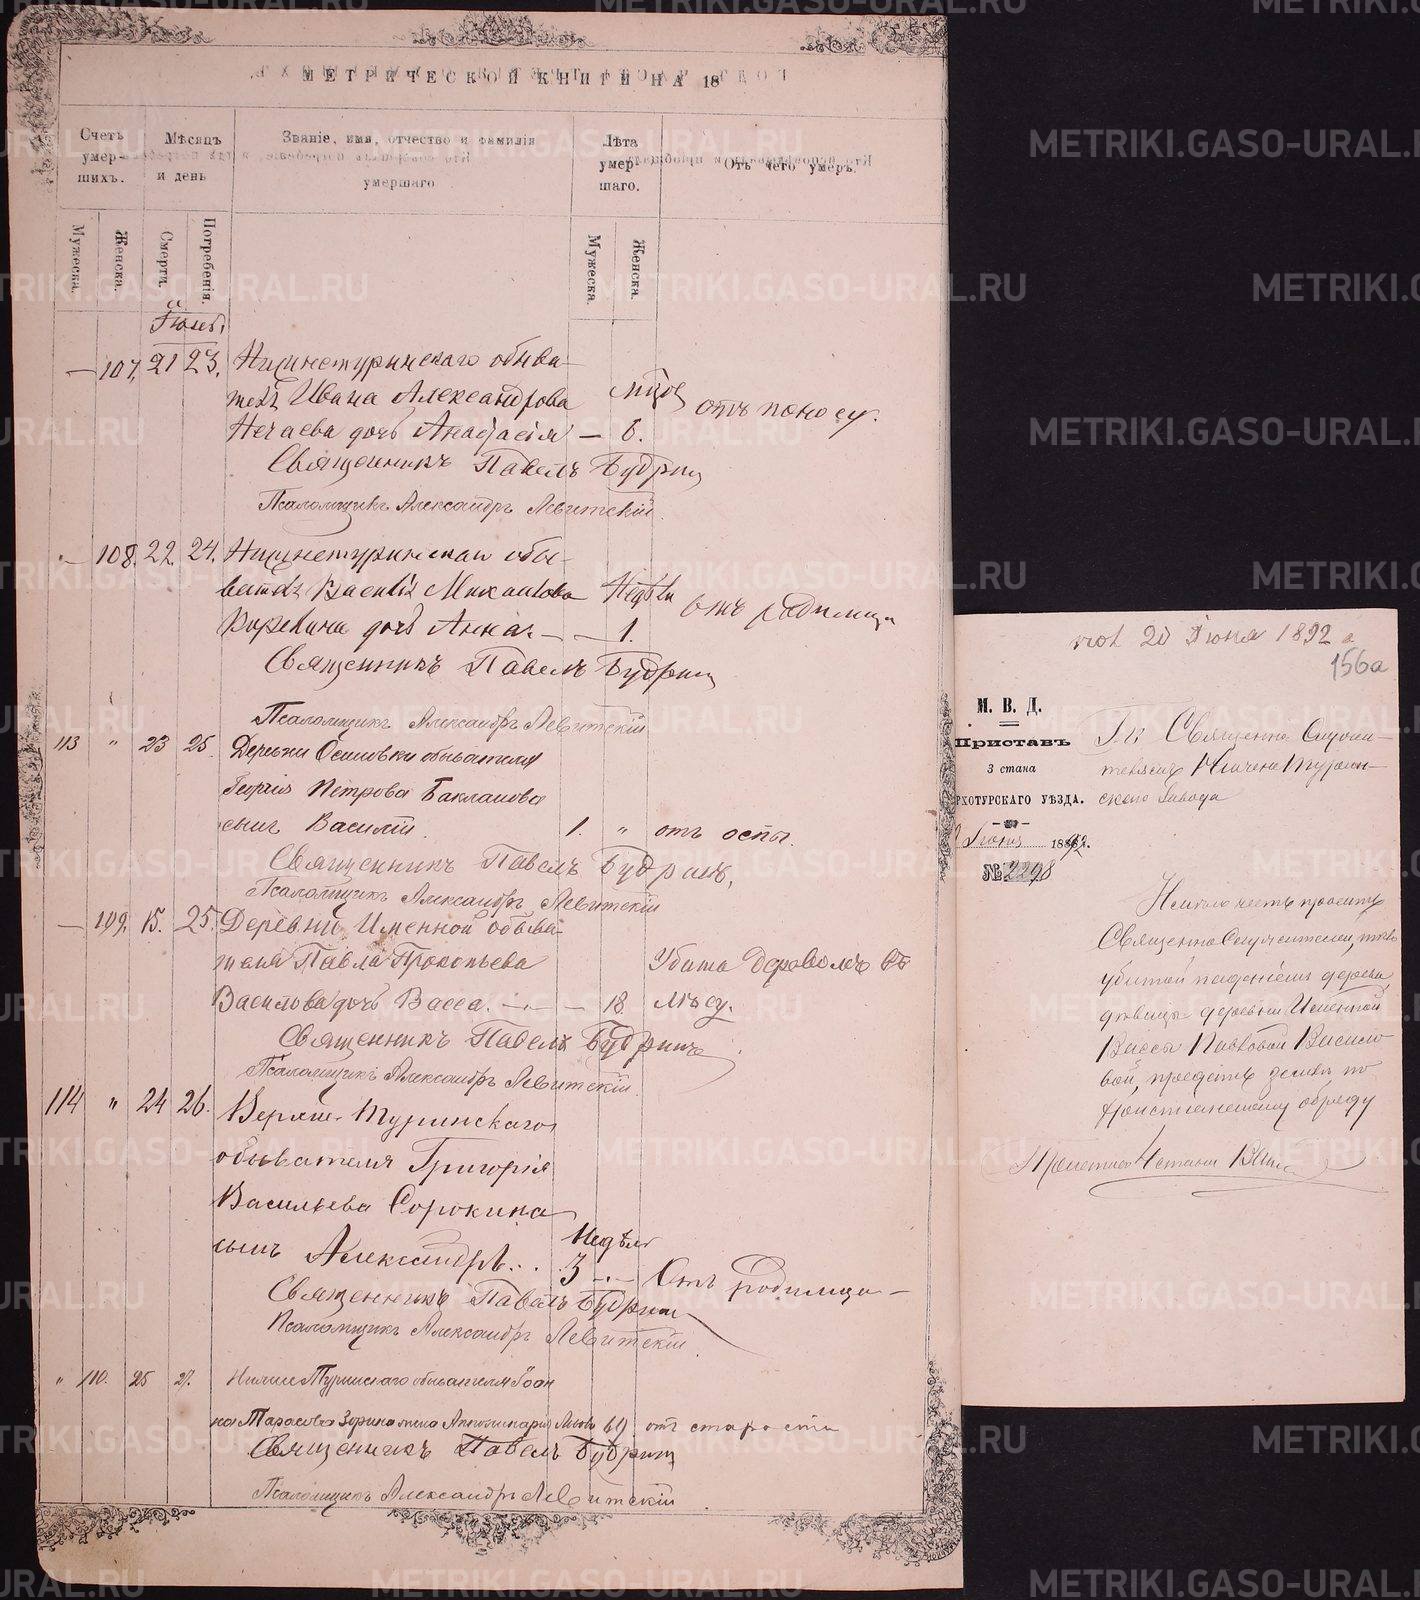 МЕТРИЧЕСКОЙ КНИГИ НА 18
Счетъ умер- шихъ.
Мѣсяцъ и день
Званіе, имя, отчество и фамилія умершаго
Лѣта умер- шаго.
Отъ чего умеръ.
Мужеска.
Женска.
Смерти.
Погребенія.
Мужеска.
Женска.
Іюль
— 107. 21 23. Нижнетуринскаго обыва-
теля Ивана Александрова мѣсяц
Нечаева дочь Анастасія — 6. отъ поносу.
Священникъ Павелъ Будринъ
Псаломщикъ Александръ Левитскій
— 108. 22. 24. Нижнетуринскаго обы-
вателя Василія Михаилова Недѣли
Дочь Анна — — 1. отъ родимца
Священникъ Павелъ Будринъ
Псаломщикъ Александръ Левитскій
113 " 23 25. Деревни Осиновки обывателя
Георгія Петрова Бакланова
сынъ Василій. 1. " отъ оспы.
Священникъ Павелъ Будринъ,
Псаломщикъ Александръ Левитскій
— 109. 15. 25. Деревни Именной обыва-
теля Павла Прокопьева
Убита деревомъ въ
Васильева дочь Васса. — 18. лѣсу.
Священникъ Павелъ Будринъ
Псаломщикъ Александръ Левитскій
114 " 24 26. Верхне-Туринскаго
обывателя Григорія
Васильева Сорокина
Недѣли
сынъ Александръ.. 3 — Отъ родимца —
Священникъ Павелъ Будринъ
Псаломщикъ Александръ Левитскій
" 110. 25 27. Нижне Туринскаго обывателя Іоан
на Тарасова Зорина жена Апполинарія 69. отъ старости
Священникъ Павелъ Будринъ
Псаломщикъ Александръ Левитскій
20 Іюня 1892
156а
М. В. Д.
Приставъ
3 стана
РХОТУРСКАГО УѢЗДА.
Іюня 1892.
№ 2298
Г.г. Священно служи-
телямъ Нижне Турин-
скаго Завода
Имѣю честь просить
Священнослужителей, тѣло
убитой паденіемъ дерева
дѣвицы деревни Именной
Вассы Павловой Василье
вой, предать землѣ по
христіанскому обряду
METRIKI.GASO-URAL.RU